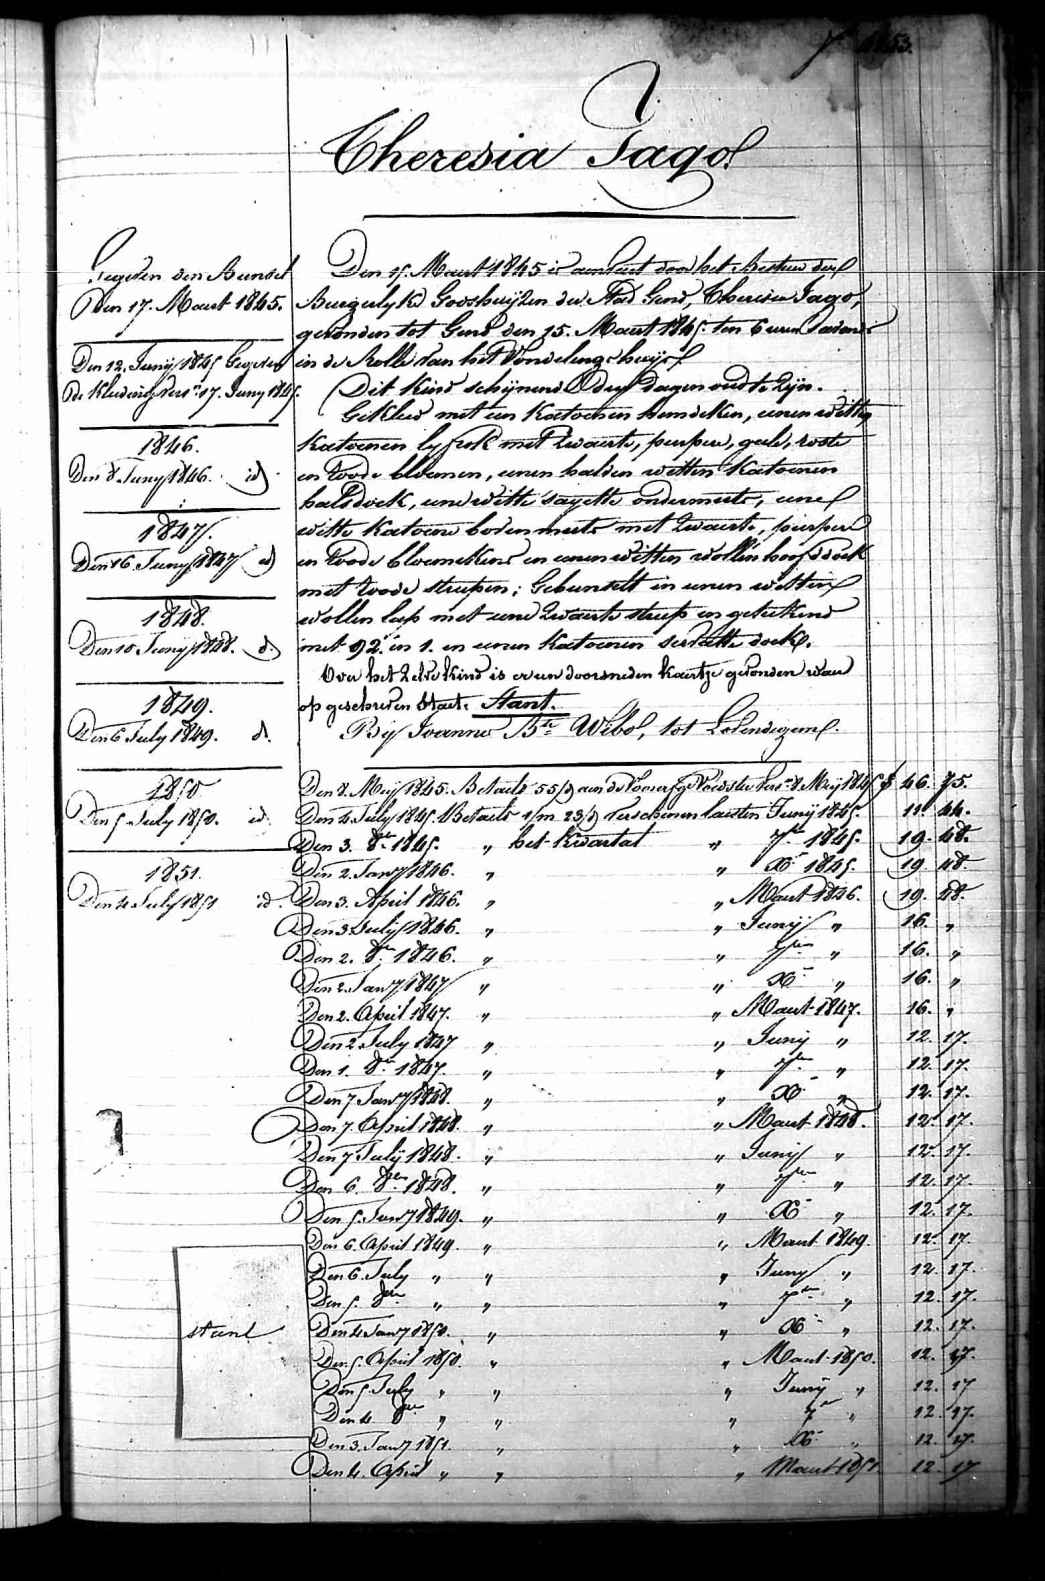 Theresia Jago
Gegeven den Bunsel
Den 17. Maart 1845.
Den 12. Junij 1845 Gegeven
de Kleeding vers. 17. Juny 1845.
1846.
Den 8. Juny 1846. id
1847.
Den 16 Juny 1847 id
1848.
Den 10 Junij 1848. id.
1849.
Den 6 July 1849. id.
1850
Den 5 July 1850. id.
1851.
Den 4 July 1851 id.
stant
Den 15. Maart 1845 is aenveert door het Bestier der
Burgerlyke Godshuijzen der Stad Gend, Theresia Jago,
gevonden tot Gend den 15. Maart 1845. ten 6 uren savonds
in de Rolle van het Vondelingshuijs
Dit Kind schijnend Dry dagen oud te zijn.
Gekleed met een Katoenen hemdeken, eenen witten
Katoenen lyfrok met zwarte, purpere, geele, roste
en roode bloemen, eenen halven witten Katoenen
halsdoek, eene witte sayette ondermuts, eene
witte Katoene bovenmuts met zwarte, purpere
en roode bloemekens en eenen witten wollen hoofddoek
met roode streepen; Gebunselt in eenen witten
wollen lap met eene zwarte streep en geteekend
met 92. in 1. en eenen Katoenen servette doek.
Over het zelve kind is eenen doorsneden kaartje gevonden waer
op geschreven staet: Stant.
Bij Joanne Bte Wibo, tot Lovendegem.
Den 8. Meij 1845. Betaelt 55/d aen de Voorafge Voedster vers. 8. Meij 1845 f 46. 75.
Den 4 July 1845. Betaelt 1/m 23/d verschenen laesten Junij 1845. 11. 44.
Den 3. 8re 1845. " het Kwartal " 7re 1845. 19. 48.
Den 2. Jany 1846. " " Xre 1845. 19. 48.
Den 3. April 1846. " " Maart 1846. 19. 48.
Den 3. July 1846. " " Junij " 16. "
Den 2. 8re 1846. " " 7re " 16. "
Den 2. Jany 1847 " " Xre " 16. "
Den 2. April 1847. " " Maart 1847. 16. "
Den 2 July 1847 " " Junij " 12. 17.
Den 1. 8re 1847. " " 7re " 12. 17.
Den 7 Jany 1848. " " Xre " 12. 17.
Den 7. April 1848. " " Maart 1848. 12. 17.
Den 7 Julij 1848. " " Junij " 12. 17.
Den 6. 8re 1848. " " 7re " 12. 17.
Den 5. Jany 1849. " " Xre " 12. 17.
Den 6. April 1849. " " Maart 1849. 12. 17.
Den 6. July " " " Juny " 12. 17.
Den 5. 8re " " " 7re " 12. 17.
Den 4 Jany 1850. " " Xre " 12. 17.
Den 5. April 1850. " " Maart 1850. 12. 17.
Den 5 July " " " Junij " 12. 17
Den 4. 8re " " " 7re " 12. 17.
Den 3. Jany 1851. " " Xre " 12. 17.
Den 4. April " " " Maart 1851 12. 17